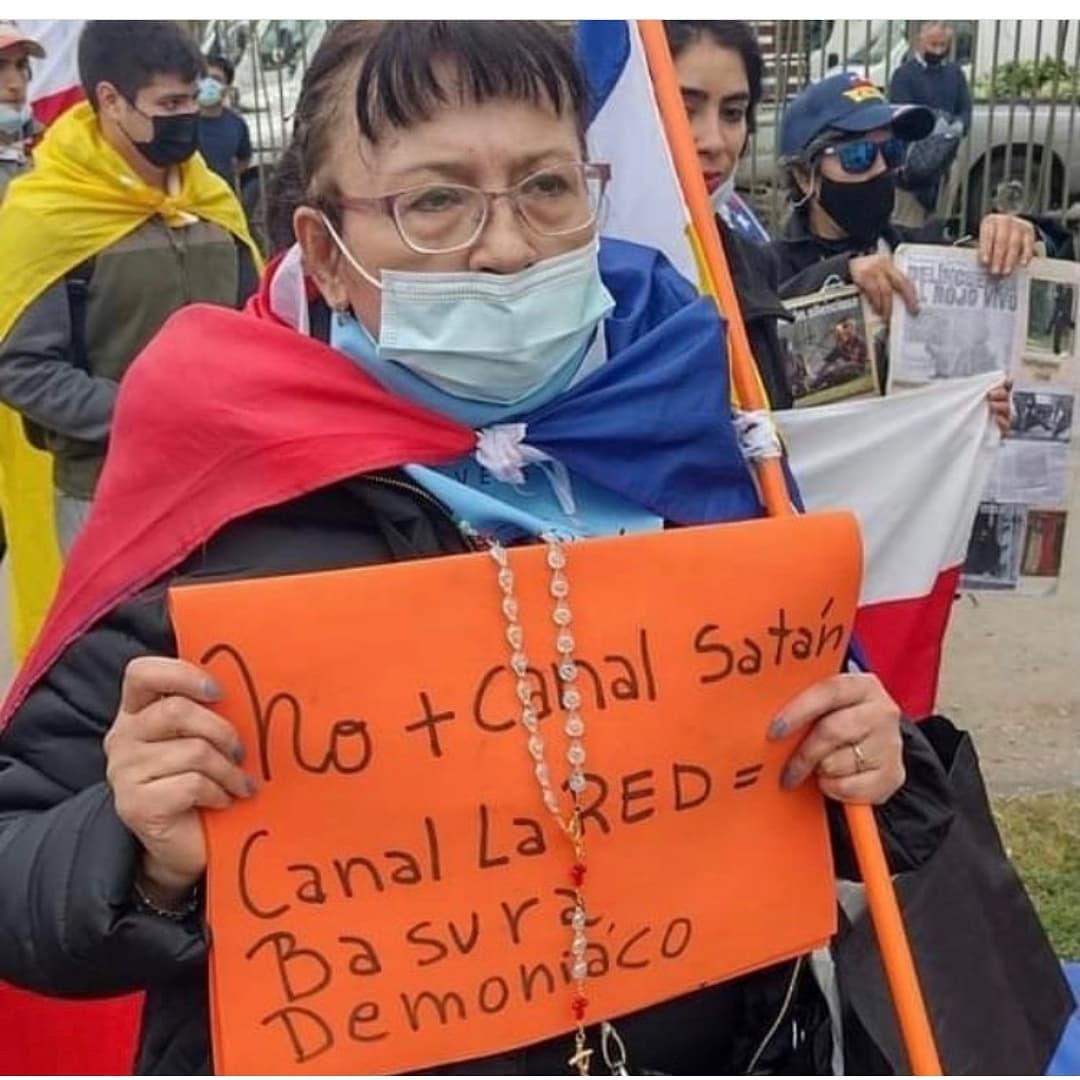 No + Canal Satán
Canal La RED =
Basura
Demoniáco
DELINCUE
L ROJO VIVO